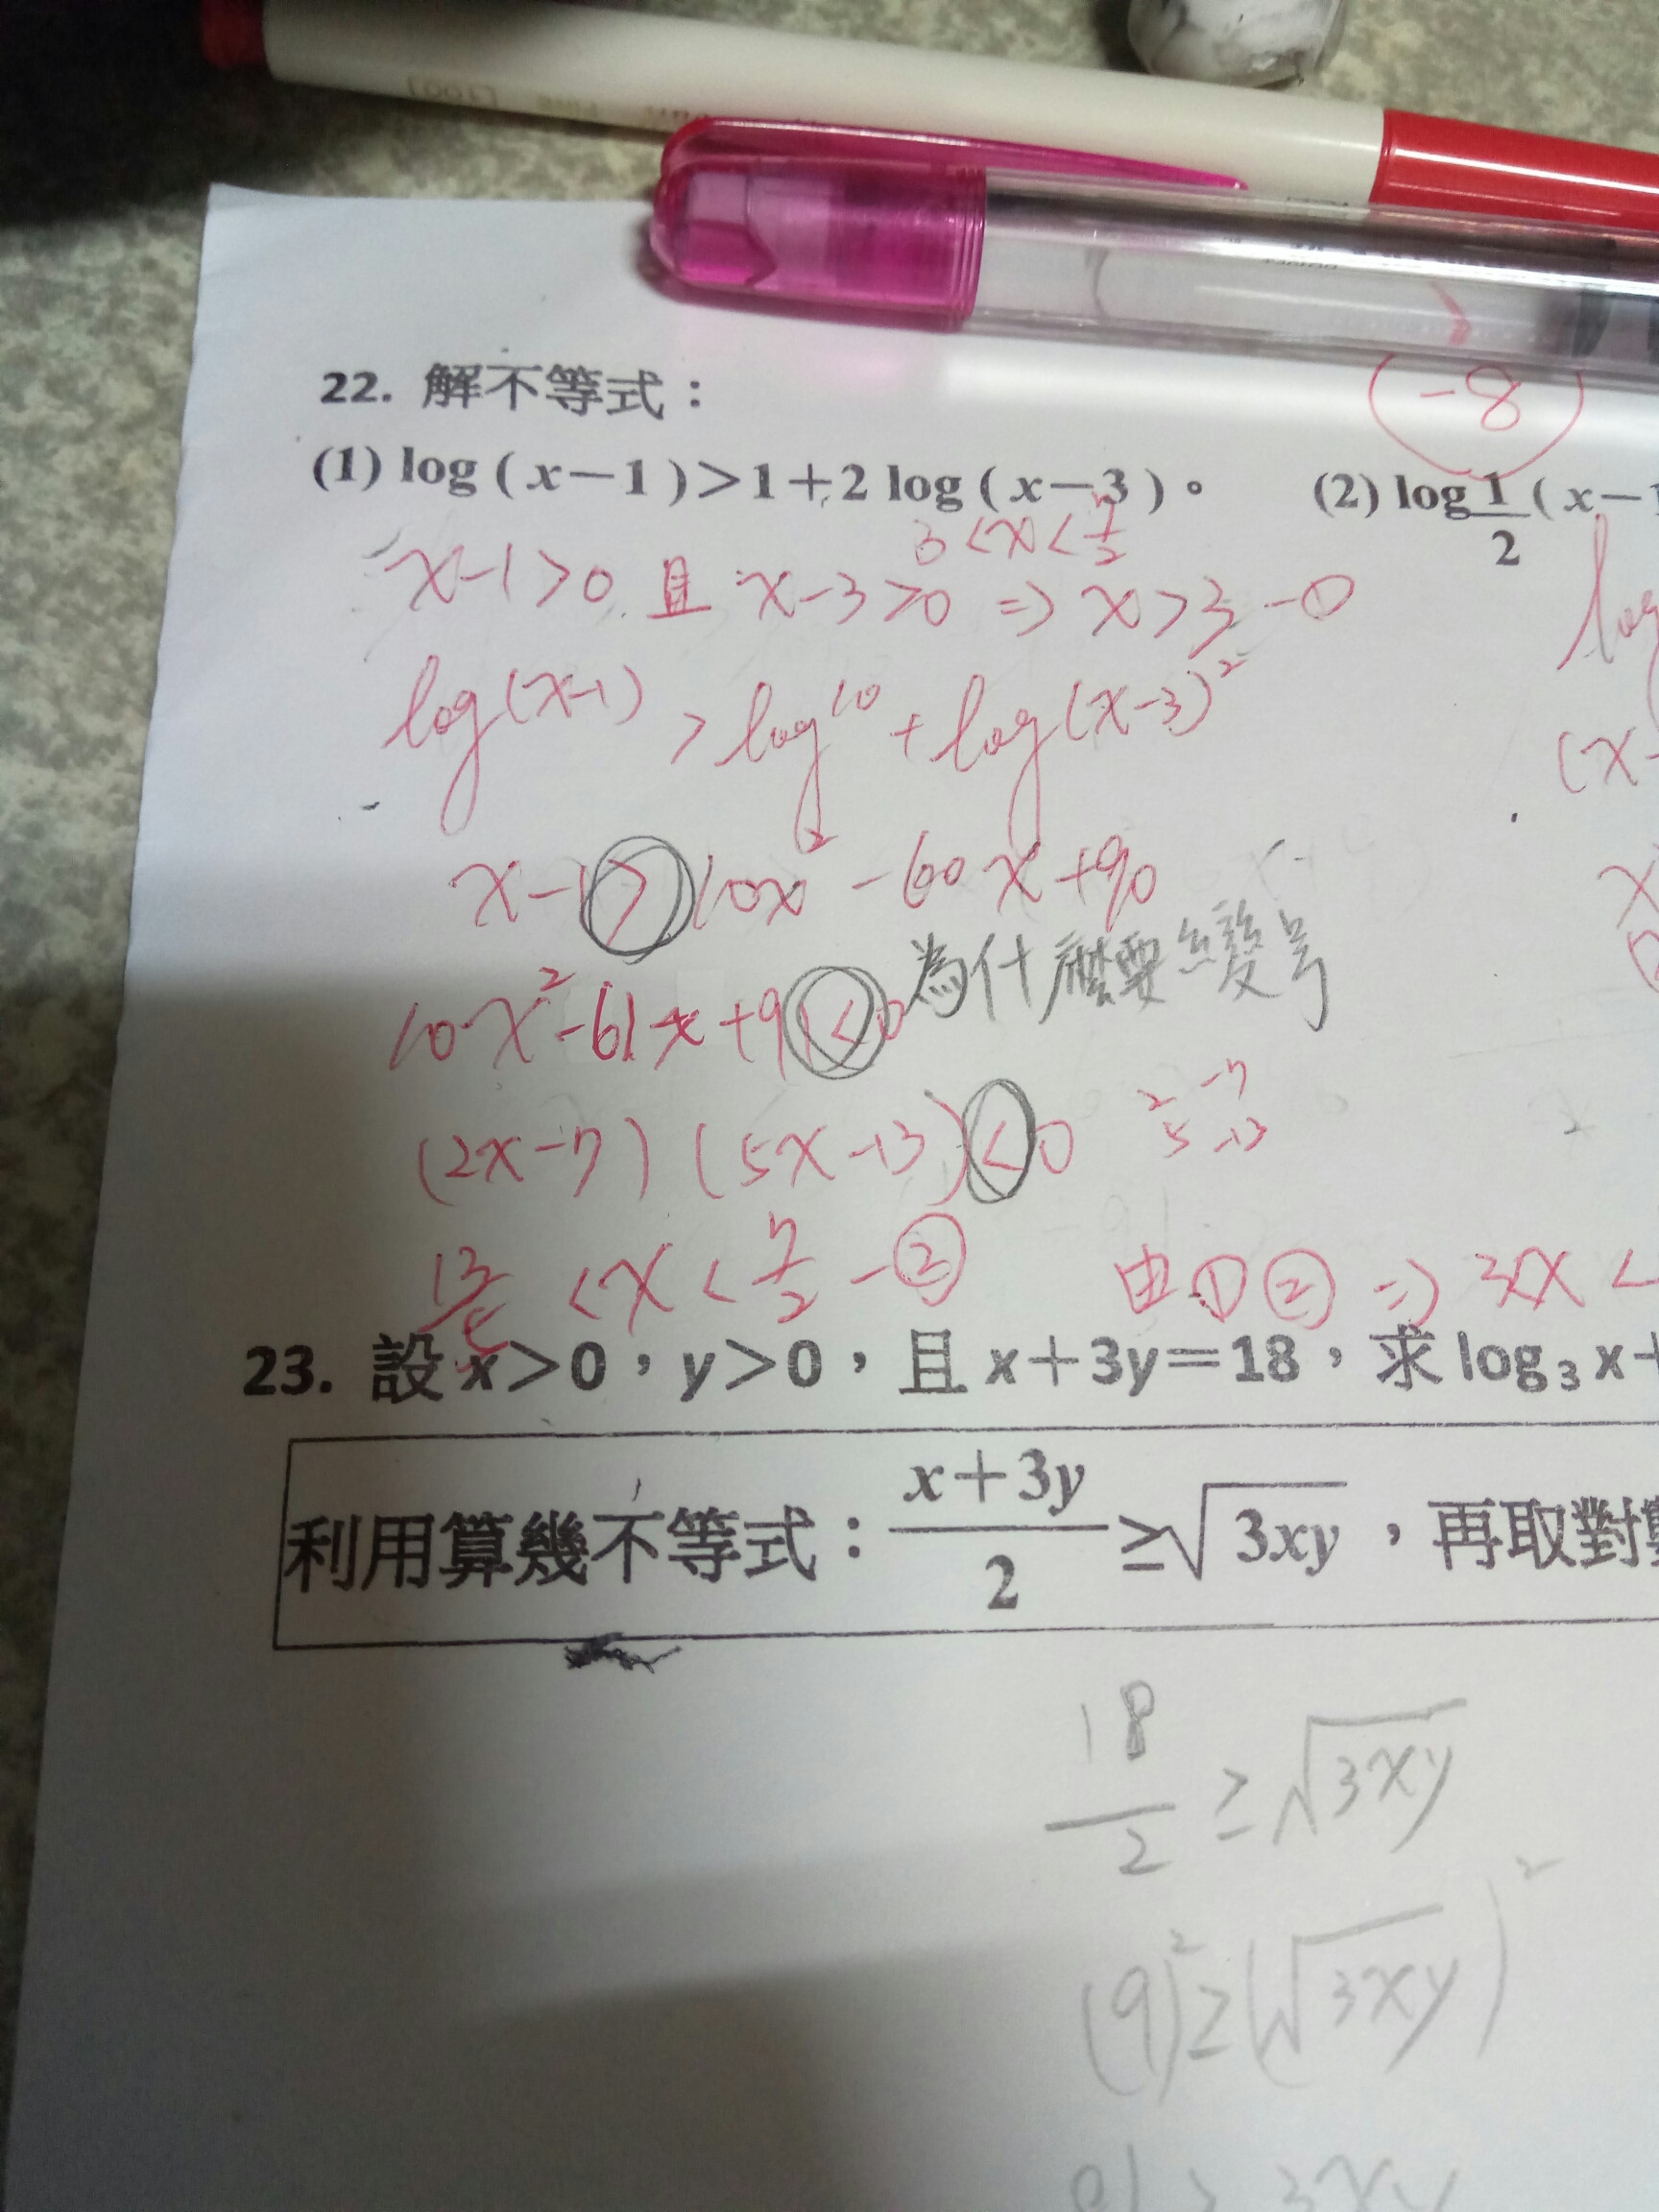 22. 解不等式：
-8
(1) log ( x－1 )＞1＋2 log ( x－3 )。 (2) log 1/2 ( x－1
3 < x < 7/2
x-1>0 且 x-3>0 => x>3 -①
log(x-1) > log10 + log(x-3)²
x-1 > 10x² - 60x + 90
10x² - 61x + 91 < 0 為什麼要變号
(2x-7) (5x-13) < 0 2 -7
5 -13
13/5 < x < 7/2 - ② 由①② => 3<x<
23. 設 x＞0，y＞0，且 x＋3y＝18，求 log₃ x＋
利用算幾不等式：x＋3y/2 ≥√3xy，再取對數
18/2 ≥ √3xy
(9)² ≥ (√3xy)²
81 ≥ 3xy